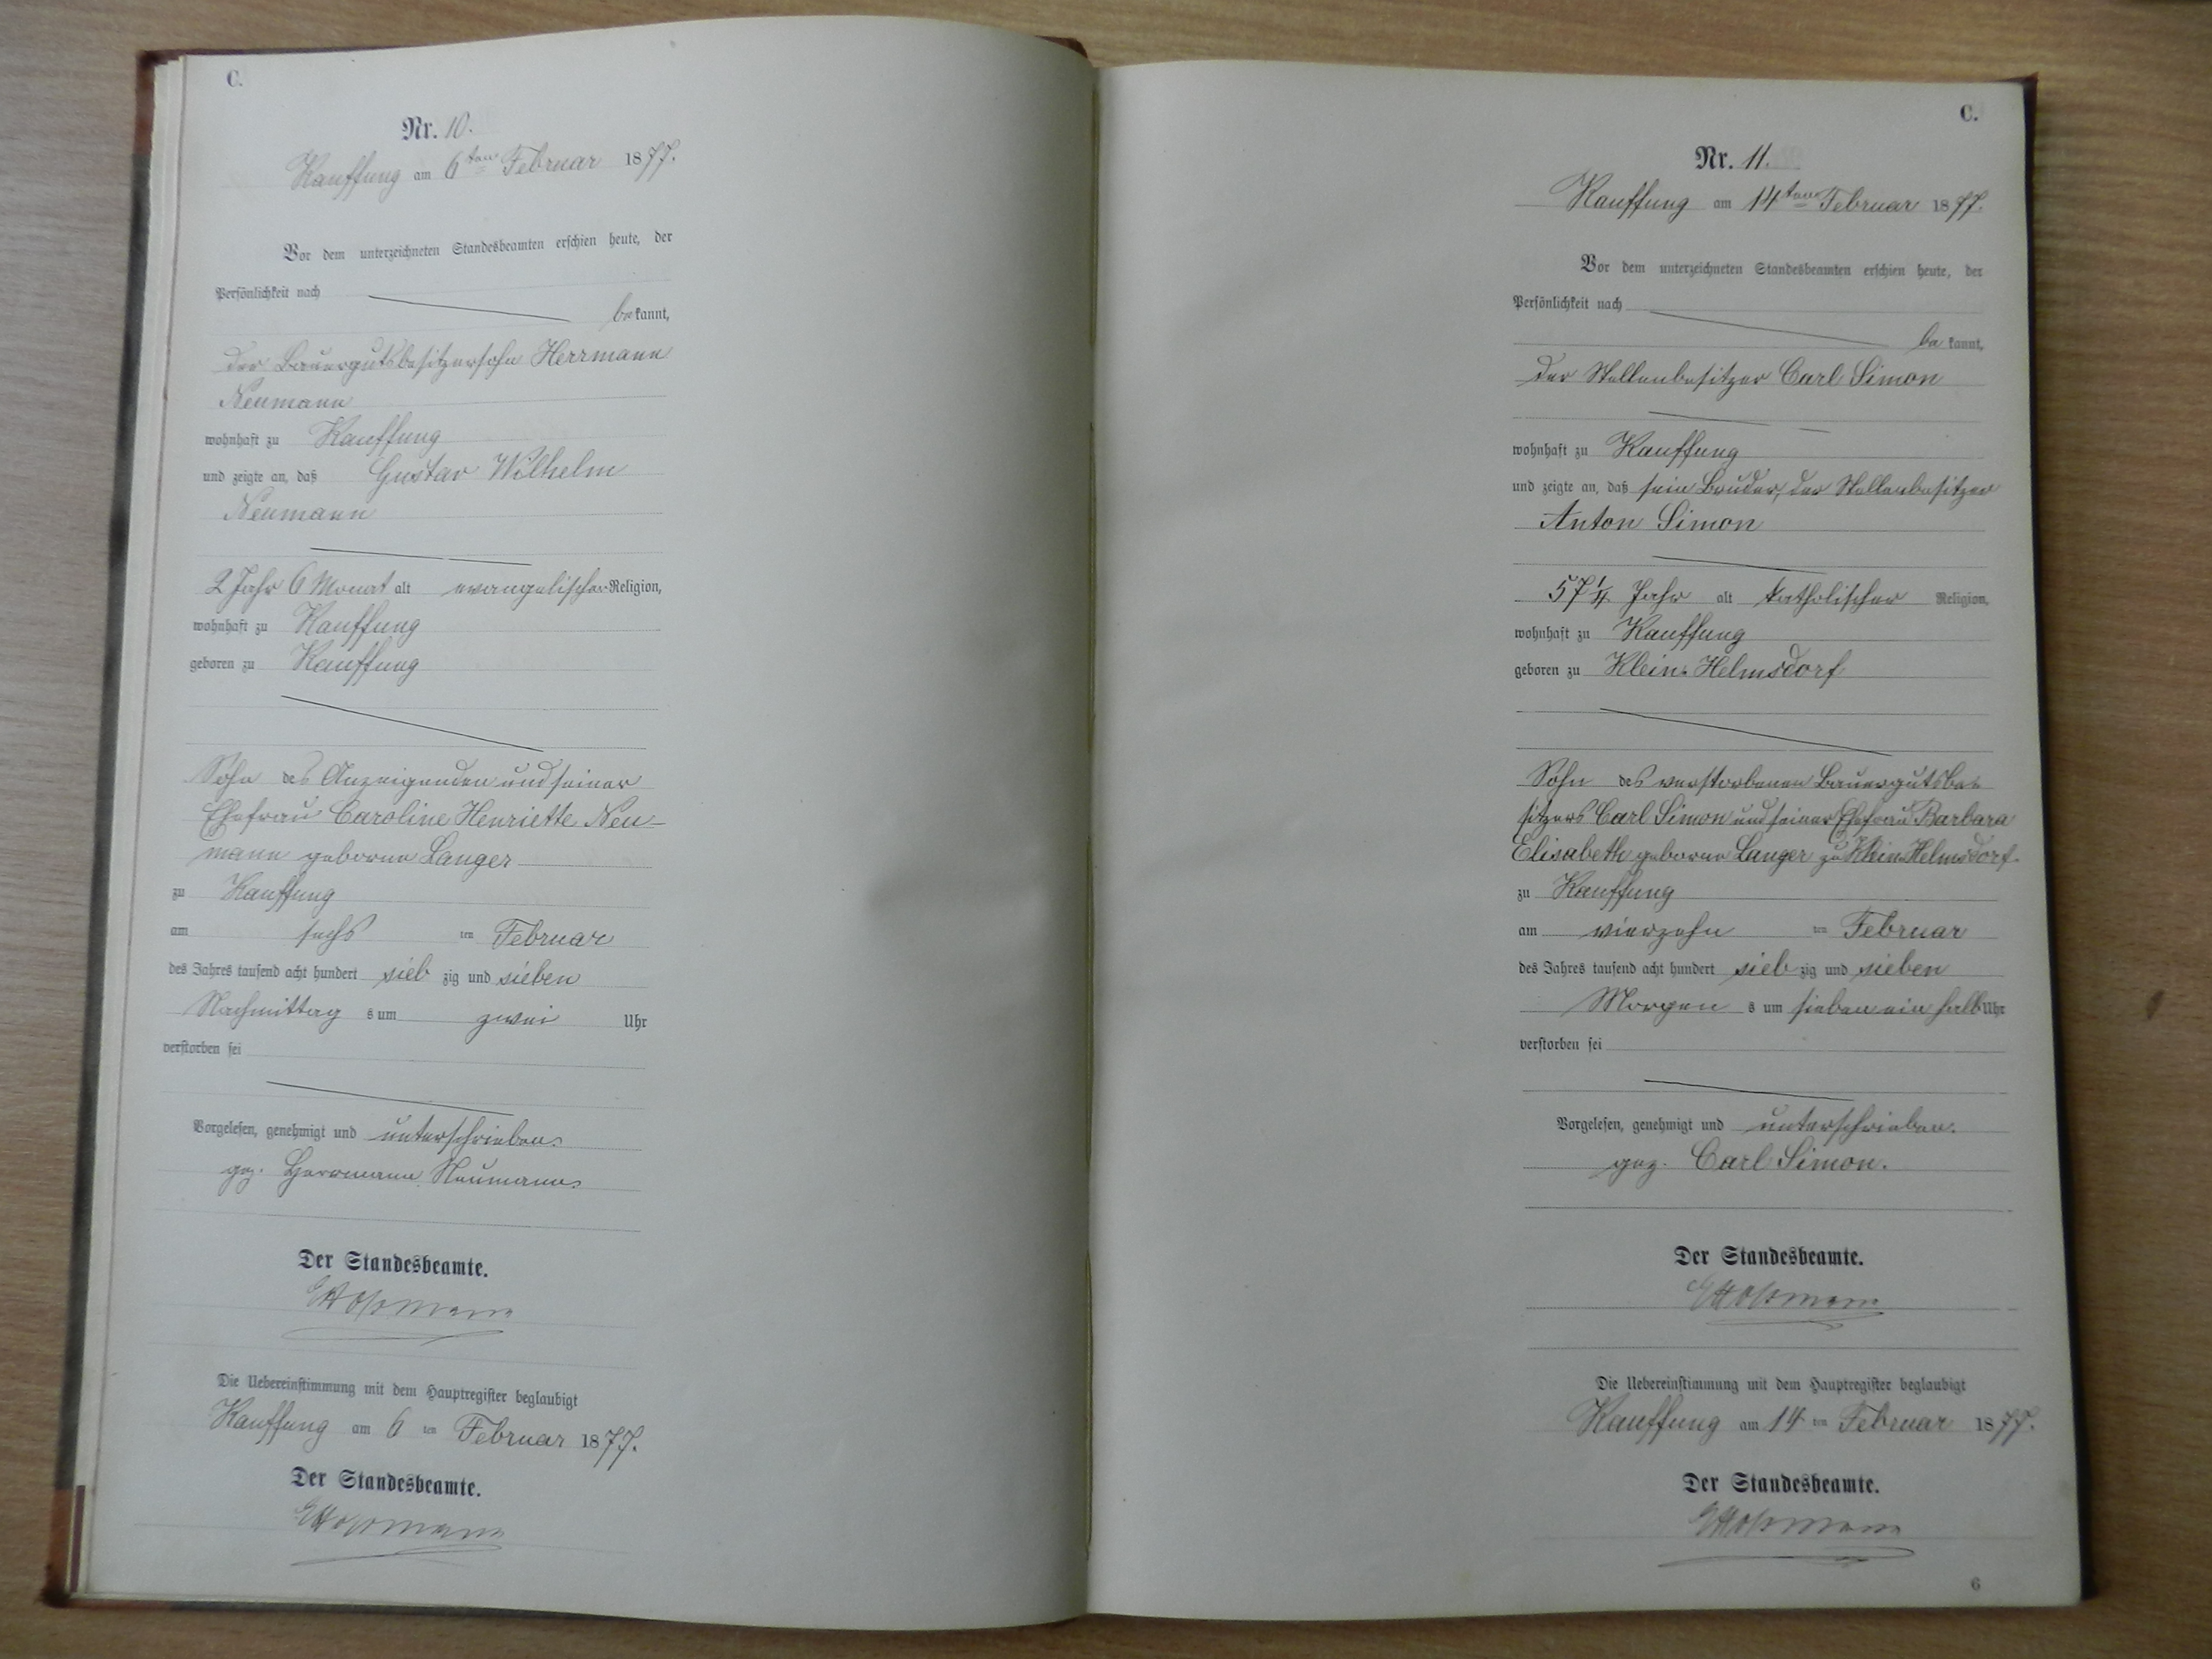 C.
Nr. 10.
Kauffung am 6ten Februar 1877.
Vor dem unterzeichneten Standesbeamten erschien heute, der
Persönlichkeit nach
bekannt,
der Bauergutsbesitzersohn Herrmann
Neumann
wohnhaft zu Kauffung
und zeigte an, daß Gustav Wilhelm
Neumann
2 Jahr 6 Monat alt evangelischer Religion,
wohnhaft zu Kauffung
geboren zu Kauffung
Sohn des Anzeigenden und seiner
Ehefrau Caroline Henriette Neu-
mann geborne Langer
zu Kauffung
am sechs ten Februar
des Jahres tausend acht hundert siebzig und sieben
Nachmittags um zwei Uhr
verstorben sei
Vorgelesen, genehmigt und unterschrieben.
gez. Herrmann Neumann.
Der Standesbeamte.
Die Uebereinstimmung mit dem Hauptregister beglaubigt
Kauffung am 6 ten Februar 1877.
Der Standesbeamte.
C.
Nr. 11.
Kauffung am 14ten Februar 1877.
Vor dem unterzeichneten Standesbeamten erschien heute, der
Persönlichkeit nach
bekannt,
der Stellenbesitzer Carl Simon
wohnhaft zu Kauffung
und zeigte an, daß sein Bruder, der Stellenbesitzer
Anton Simon
57 1/4 Jahr alt katholischer Religion,
wohnhaft zu Kauffung
geboren zu Klein-Helmsdorf
Sohn des verstorbenen Bauergutsbe-
sitzers Carl Simon und seiner Ehefrau Barbara
Elisabeth geborne Langer zu Klein-Helmsdorf
zu Kauffung
am vierzehn ten Februar
des Jahres tausend acht hundert siebzig und sieben
Morgens um sieben ein halb Uhr
verstorben sei
Vorgelesen, genehmigt und unterschrieben.
gez. Carl Simon.
Der Standesbeamte.
Die Uebereinstimmung mit dem Hauptregister beglaubigt
Kauffung am 14 ten Februar 1877.
Der Standesbeamte.
6